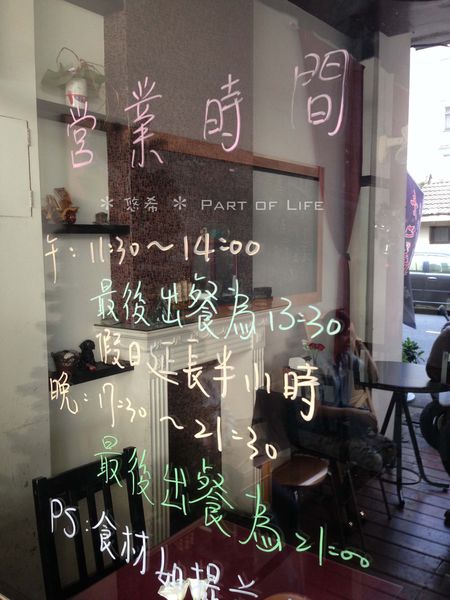 營業時間
＊悠希＊ PART OF LIFE
午：11:30～14:00
最後出餐為13:30
假日延長半小時
晚：17:30～21:30
最後出餐為21:00
PS：食材如提